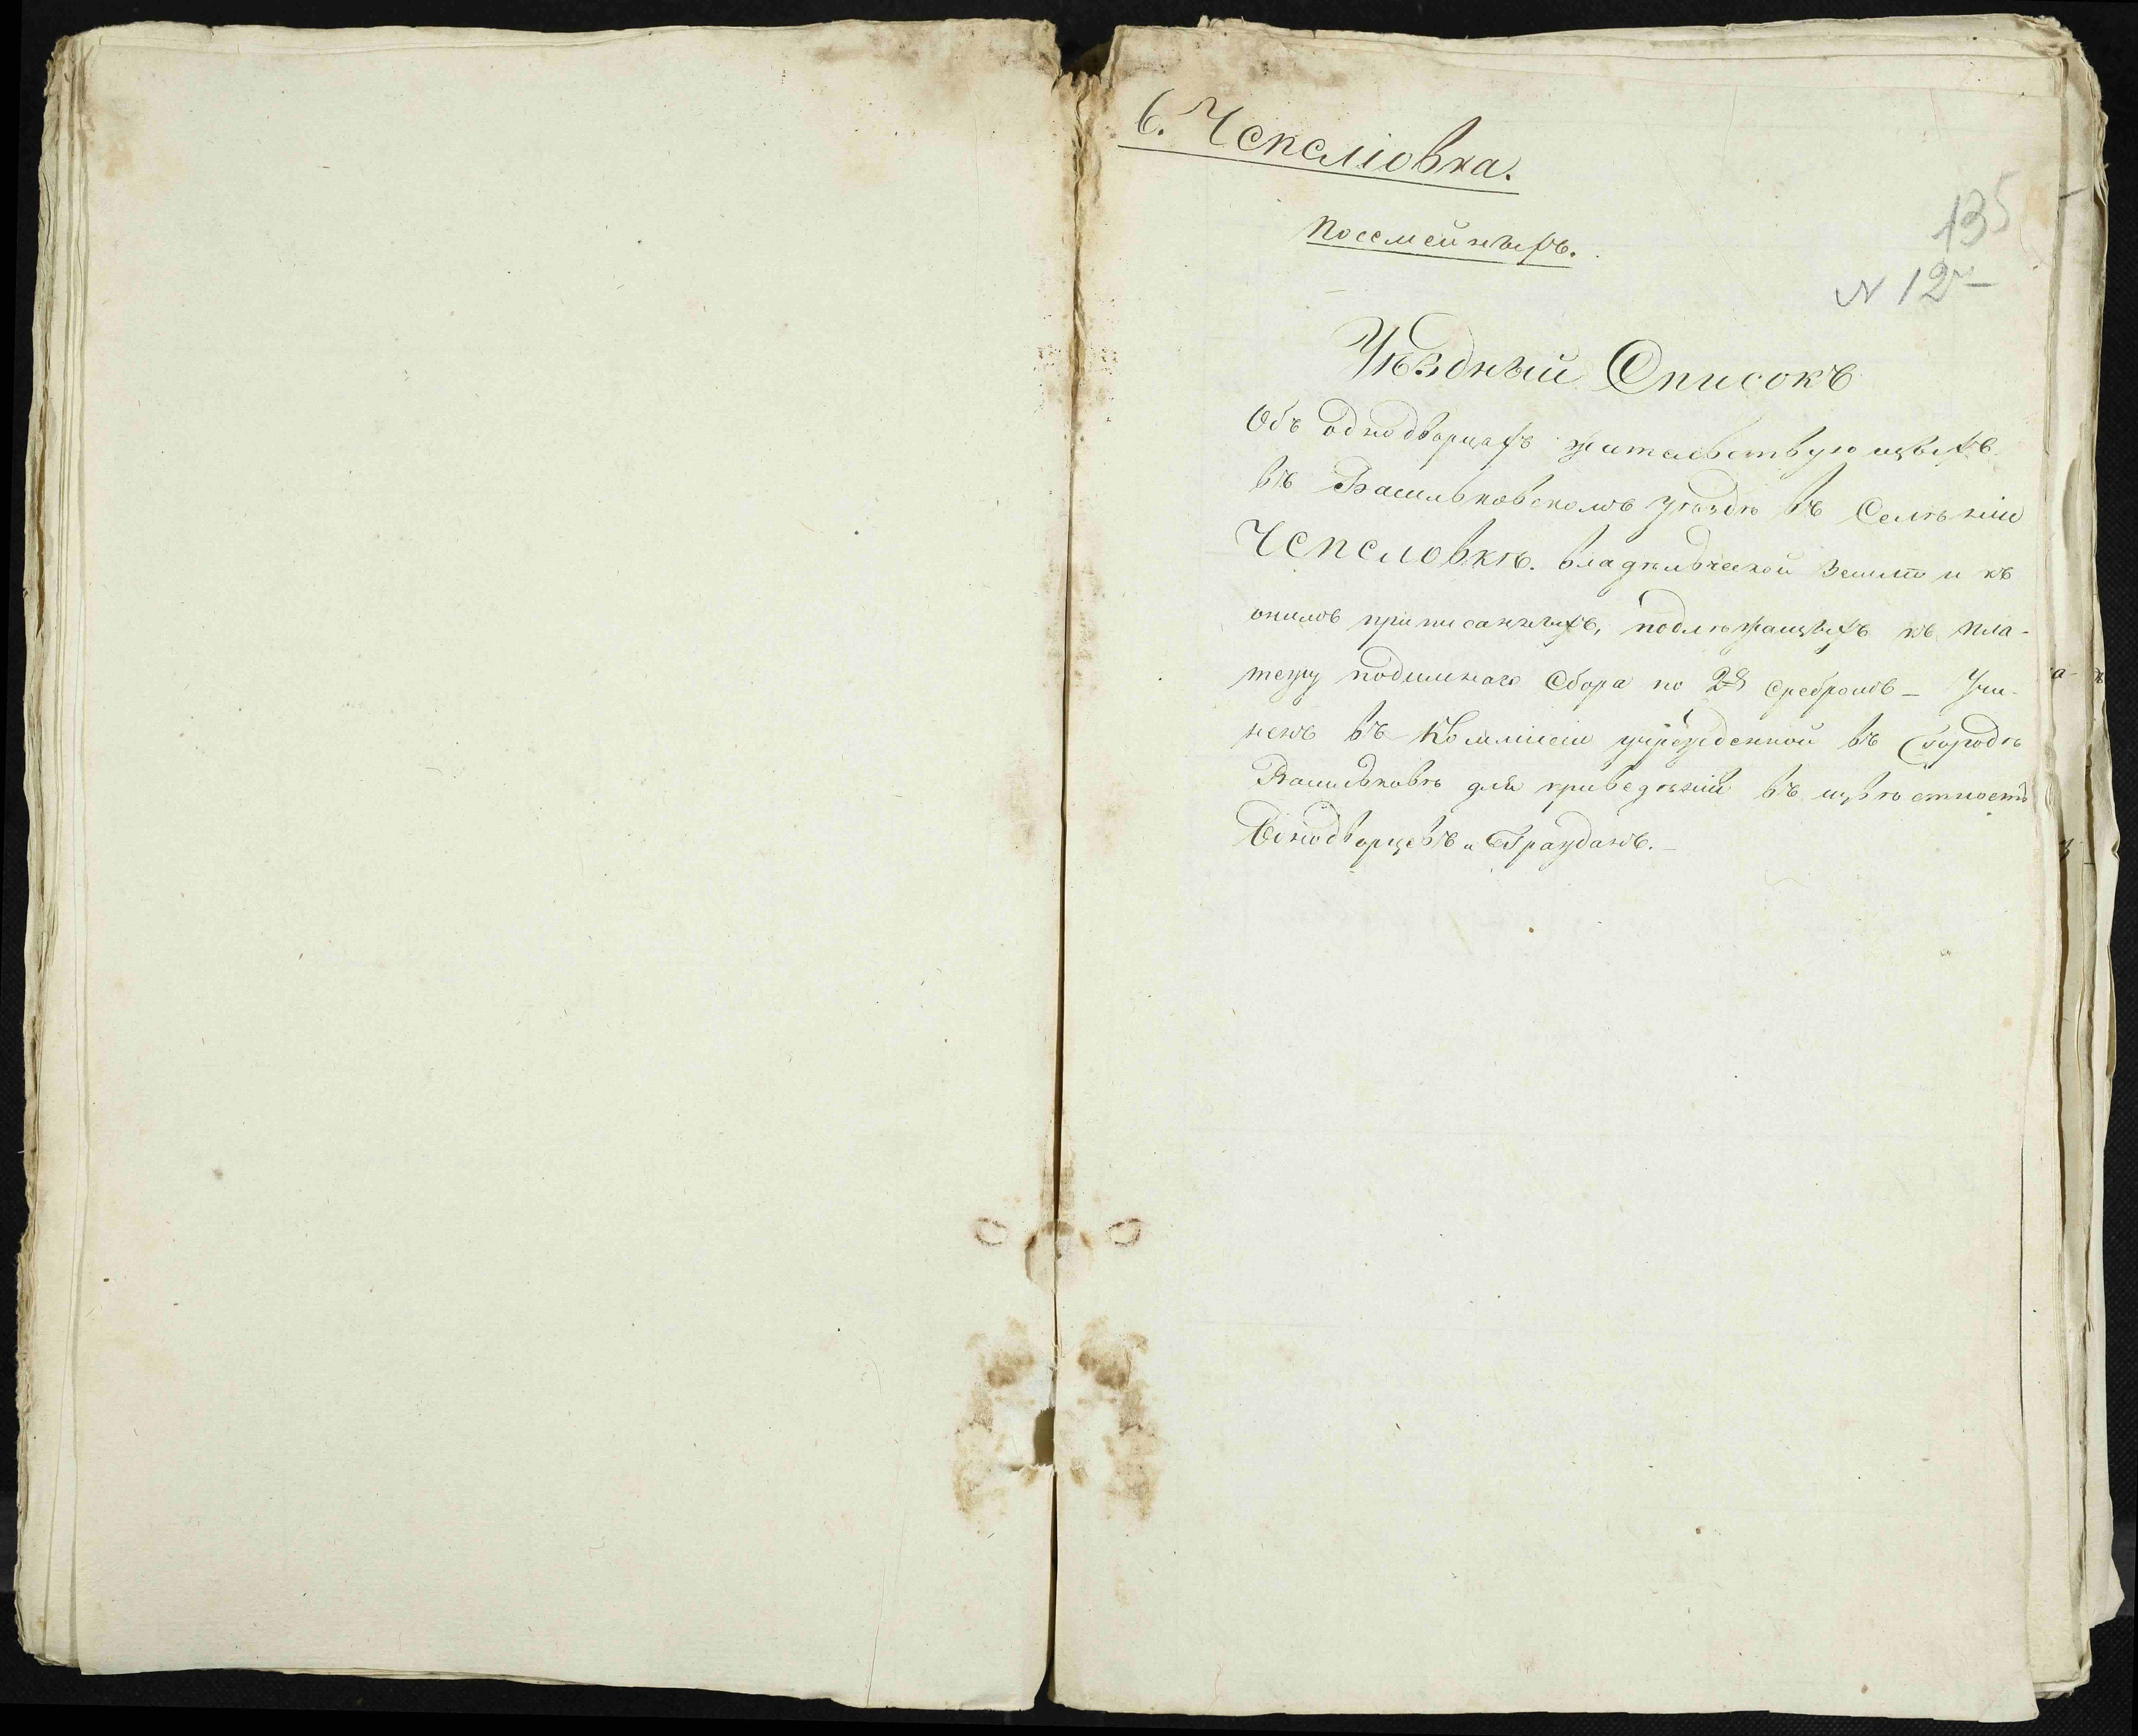 6. Чепеліовка.
Посемейныхъ.
135
N 12
Уѣздный Списокъ
Объ однодворцахъ жительствующихъ
въ Васильковскомъ уѣздѣ въ Селѣніи
Чепеловкѣ. владѣльческой Земли и къ
онимъ приписанныхъ, подлѣжащихъ къ пла-
тежу подимнаго Сбора по 2 сребромъ – Учи-
ненъ въ Коммисіи учрежденной въ Городѣ
Васильковѣ для приведѣнія въ извѣстность
Однодворцевъ и Гражданъ. –